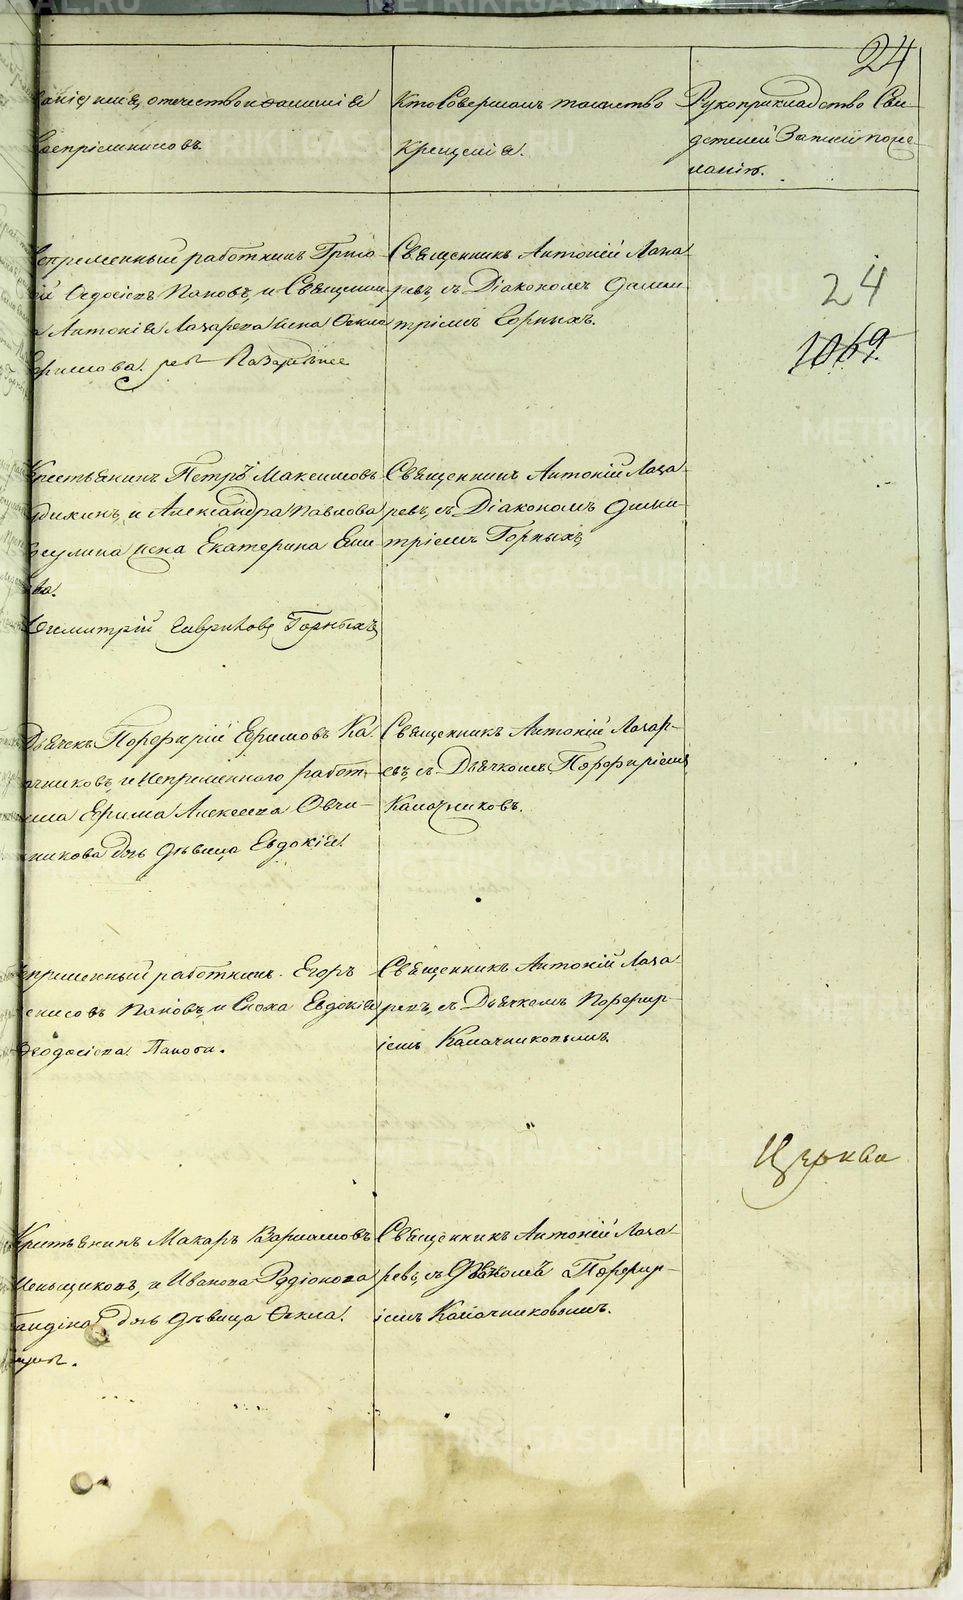 24
отечество и фамилія
воспріемниковъ
Кто Совершалъ таинство
Крещенія.
Рукоприкладство Сви-
детелей Записи по же-
ланію.
непременный работникъ Григо-
ѳедосіевъ Пановъ, и Священни
Антонія Лазарева жена
Священникъ Антоній Лаза
ревъ, съ Діакономъ Дими
тріемъ Горныхъ.
24
1069
Крестьянинъ Петръ Максимовъ
и Александра Павлова
жена Екатерина
ва.
Димитрій Гавриловъ Горныхъ
Священникъ Антоній Лаза-
ревъ, съ Діакономъ Дими-
тріемъ Горныхъ
Дьячекъ Порфирій Ефимовъ Ка
ачниковъ, и Непременнаго работ-
Ефима Алексеева Овчи-
никова дочь девица Евдокія.
Священникъ Антоній Лазар-
евъ, съ Дьячкомъ Порфиріемъ
Калачниковъ.
епременный работникъ Егоръ
енисовъ Пановъ, и Сноха Евдокія
Ѳеодосіева Панова.
Священникъ Антоній Лаза-
ревъ, съ Дьячкомъ Порфир-
іемъ Калачниковымъ.
Церква
Крестьянинъ Макаръ Варламовъ
и Ивана Родіонова
дочь девица Ѳекла.
Священникъ Антоній Лаза-
ревъ, съ Дьячкомъ Порфир-
іемъ Калачниковымъ.
METRIKI.GASO-URAL.RU